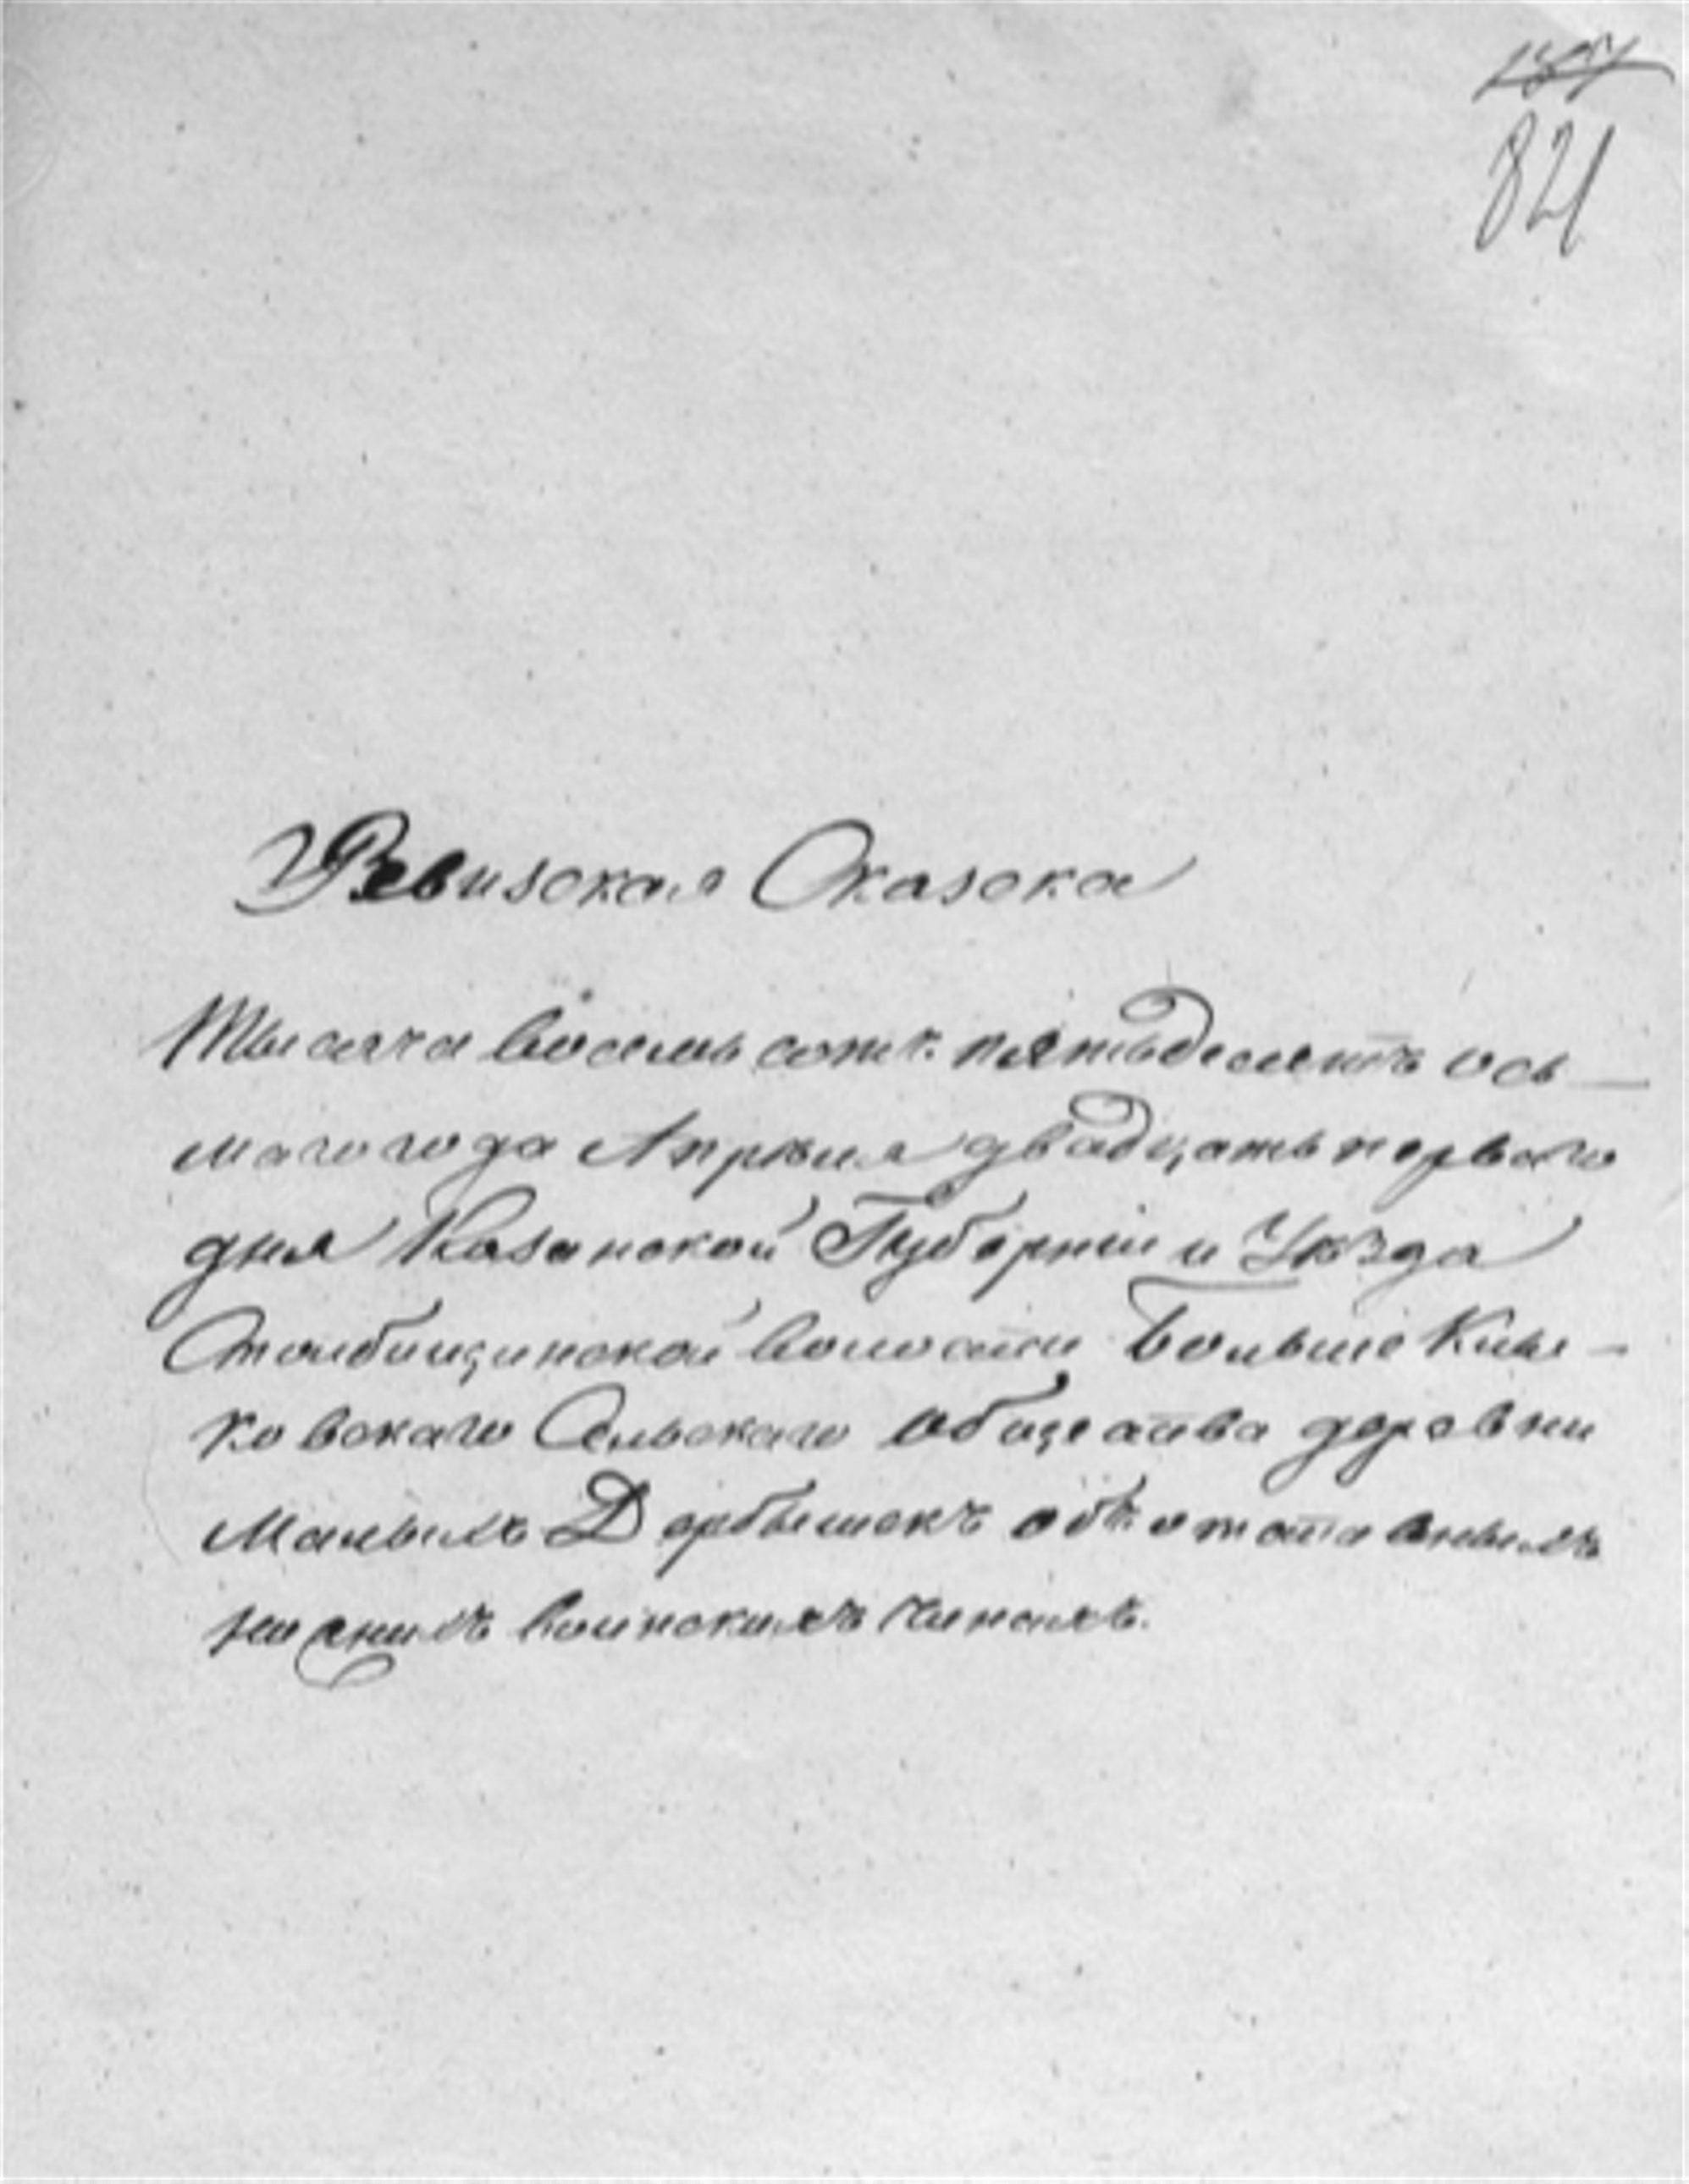 821
Ревизская Сказска
Тысяча восемь сотъ пятьдесятъ ось-
маго года Апрѣля двадцать перваго
дня Казанской Губерніи и Уѣзда
Столбищинской волости Больше Кибя-
ковскаго Сельскаго общества деревни
Малыхъ Дербышекъ объ отставныхъ
нижнихъ воинскихъ чинахъ.